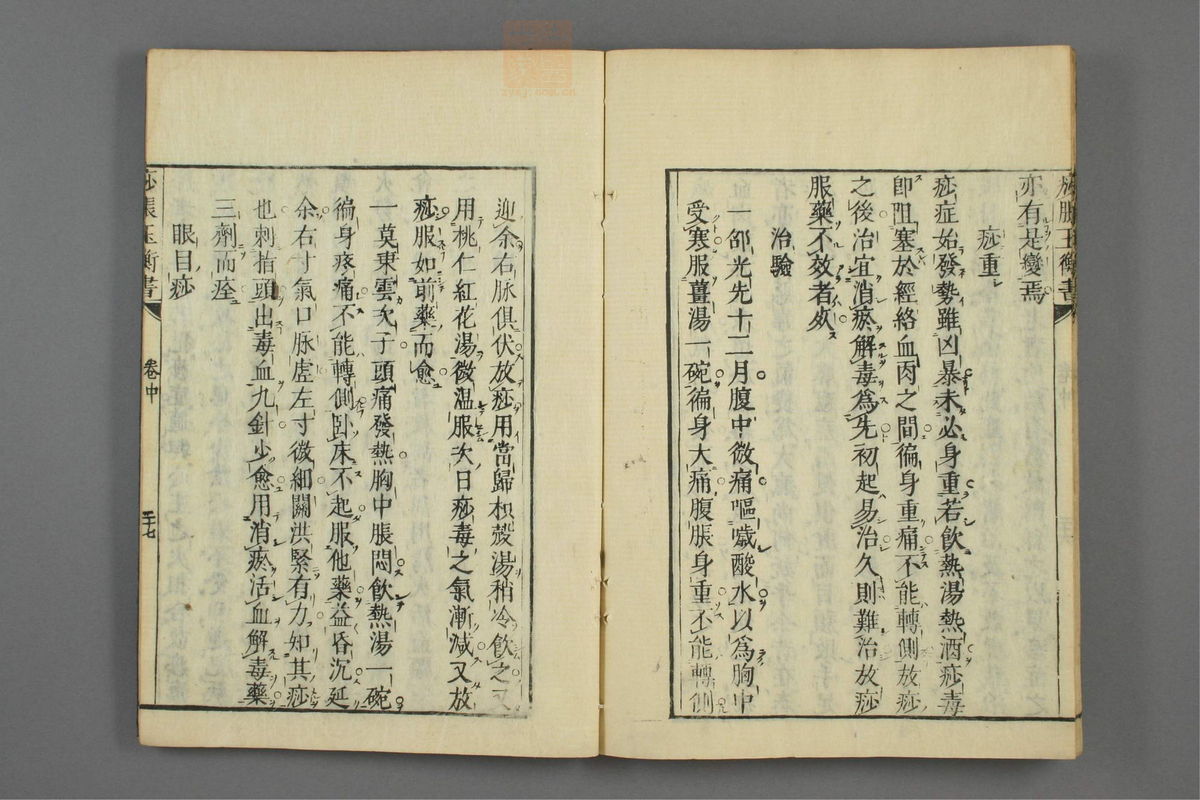 亦有是變焉
痧重
痧症始發勢雖凶暴未必身重若飲熱湯熱酒痧毒
卽阻塞於經絡血肉之間徧身重痛不能轉側放痧
之後治宜消瘀解毒爲先初起易治久則難治放痧
服藥不效者死
治驗
一邵光先十二月腹中微痛嘔噦酸水以爲胸中
受寒服薑湯一碗徧身大痛腹脹身重不能轉側
迎余右脉俱伏放痧用當歸枳殼湯稍冷飲之又
用桃仁紅花湯微温服次日痧毒之氣漸減又放
痧服如前藥而愈
一莫東雲次子頭痛發熱胸中脹悶飲熱湯一碗
徧身疼痛不能轉側卧床不起服他藥益昏沉延
余右寸氣口脉虛左寸微細關洪緊有力知其痧
也刺指頭出毒血九針少愈用消瘀活血解毒藥
三劑而痊
眼目痧
痧脹玉衡書
卷中
二十七